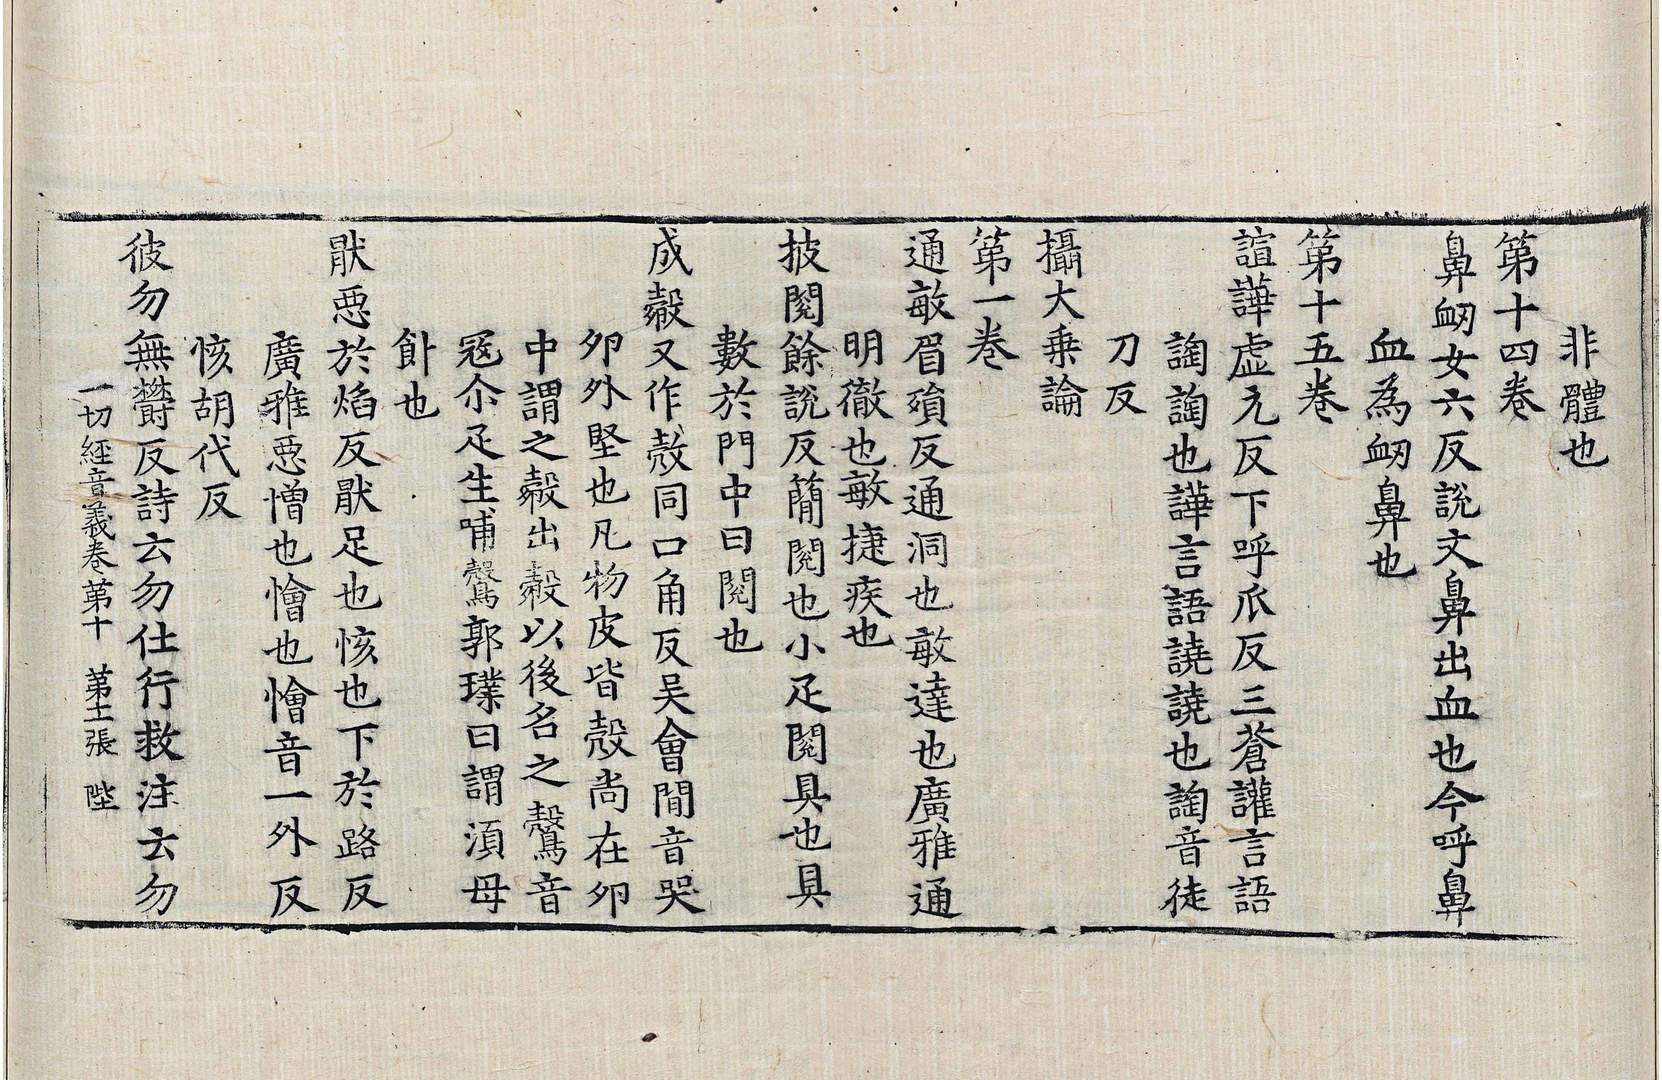 非體也
第十四卷
鼻衂女六反說文鼻出血也今呼鼻
血為衂鼻也
第十五卷
諠譁虛元反下呼爪反三蒼讙言語
詾詾也譁言語譊譊也詾音徒
刀反
攝大乗論
第一卷
通敏眉殞反通洞也敏達也廣雅通
明徹也敏捷疾也
披閱餘說反蕳閱也小疋閱具也具
數於門中曰閱也
成㲉又作殼同口角反吴會間音哭
卵外堅也凡物皮皆殼尚在卵
中謂之㲉出㲉以後名之鷇音
冦尒疋生哺鷇郭璞曰謂湏母
飤也
猒惡於焰反猒足也恡也下於路反
廣雅惡憎也憎也憎音一外反
恡胡代反
彼勿無欝反詩云勿仕行救注云勿
一切經音義卷第十　第十一張　陛